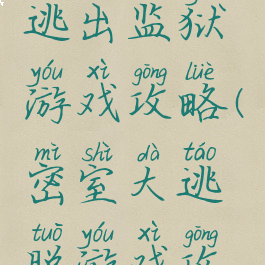 逃出监狱
yóu xì gōng lüè
游戏攻略(
mì shì dà táo
密室大逃
tuō yóu xì gōng
脱游戏攻